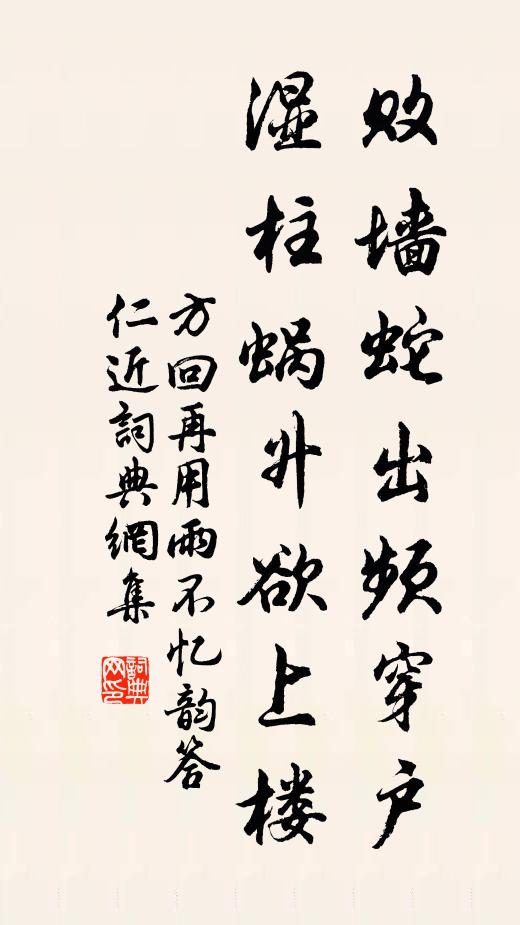 败墙蛇出频穿户
湿柱蜗升欲上楼
方回再用雨不忆韵答
仁近詞典網集
詞典网印